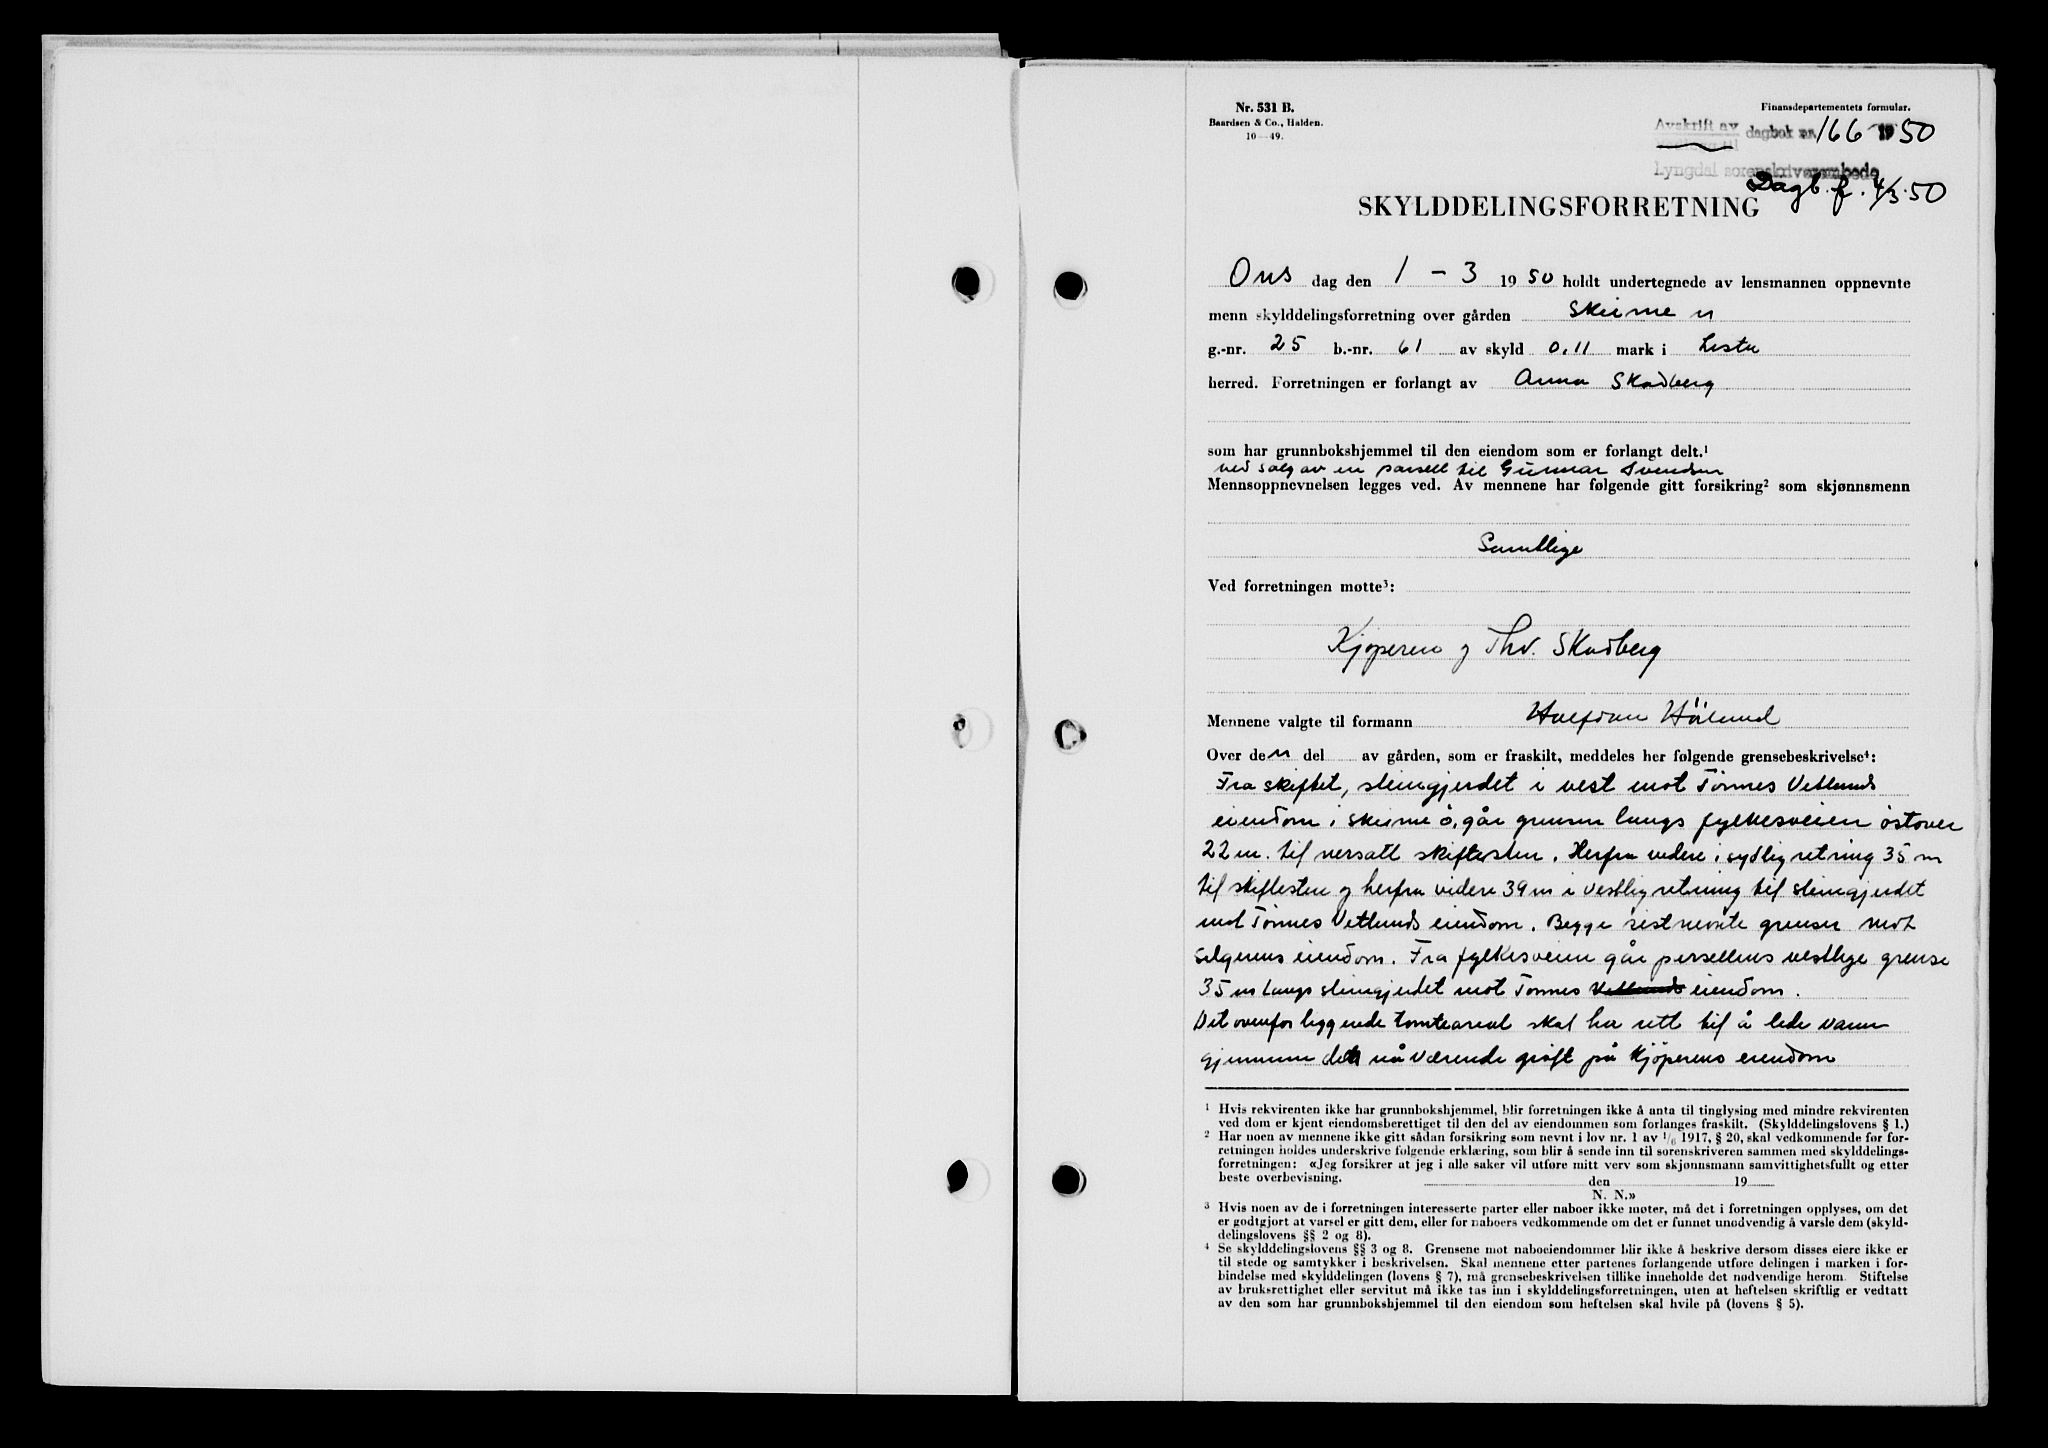 Nr. 531 B.
Baardsen & Co., Halden.
10—49.
Finansdepartementets formular.
Avskrift av dagbok nr. 166 1950
Lyngdal sorenskriverembede
Dagb. f. 4/3. 50
SKYLDDELINGSFORRETNING
Ons dag den 1 - 3 1950 holdt undertegnede av lensmannen oppnevnte
menn skylddelingsforretning over gården Skeime n
g.-nr. 25 b.-nr. 61 av skyld 0,11 mark i Lista
herred. Forretningen er forlangt av Anna Skadberg
som har grunnbokshjemmel til den eiendom som er forlangt delt.¹
ved salg av en parsell til Gunnar Svendsen
Mennsoppnevnelsen legges ved. Av mennene har følgende gitt forsikring² som skjønnsmenn
Samtlige
Ved forretningen møtte³:
Kjøperen og Thv. Skadberg
Mennene valgte til formann Halfdan Höiland
Over den del av gården, som er fraskilt, meddeles her følgende grensebeskrivelse⁴:
Fra skiftet, steingjerdet i vest mot Tönnes Vetlands
eiendom i Skeime ö, går grensen langs fylkesveien östover
22 m. til nersatt skiftesten. Herfra videre i sydlig retning 35 m
til skiftesten og herfra videre 39 m i vestlig retning til steingjerdet
mot Tönnes Vetlands eiendom. Begge sistnevnte grenser mot
selgerens eiendom. Fra fylkesveien går parsellens vestlige grense
35 m langs steingjerdet mot Tönnes Vetlands eiendom.
Det ovenfor liggende tomteareal skal ha rett til å lede vann
gjennem den nåværende gröft på kjöperens eiendom
¹ Hvis rekvirenten ikke har grunnbokshjemmel, blir forretningen ikke å anta til tinglysing med mindre rekvirenten
ved dom er kjent eiendomsberettiget til den del av eiendommen som forlanges fraskilt. (Skylddelingslovens § 1.)
² Har noen av mennene ikke gitt sådan forsikring som nevnt i lov nr. 1 av 1/6 1917, § 20, skal vedkommende før for-
retningen holdes underskrive følgende erklæring, som blir å sende inn til sorenskriveren sammen med skylddelings-
forretningen: «Jeg forsikrer at jeg i alle saker vil utføre mitt verv som skjønnsmann samvittighetsfullt og etter
beste overbevisning. den 19
N. N.»
³ Hvis noen av de i forretningen interesserte parter eller naboer ikke møter, må det i forretningen opplyses, om det
er godtgjort at varsel er gitt dem, eller for naboers vedkommende om det er funnet unødvendig å varsle dem (skyld-
delingslovens §§ 2 og 8).
⁴ Se skylddelingslovens §§ 3 og 8. Grensene mot naboeiendommer blir ikke å beskrive dersom disses eiere ikke er
til stede og samtykker i beskrivelsen. Skal mennene etter partenes forlangende utføre delingen i marken i for-
bindelse med skylddelingen (lovens § 7), må grensebeskrivelsen tillike inneholde det nødvendige herom. Stiftelse
av bruksrettighet eller servitut må ikke tas inn i skylddelingsforretningen, uten at heftelsen skriftlig er vedtatt
av den som har grunnbokshjemmel til den eiendom som heftelsen skal hvile på (lovens § 5).